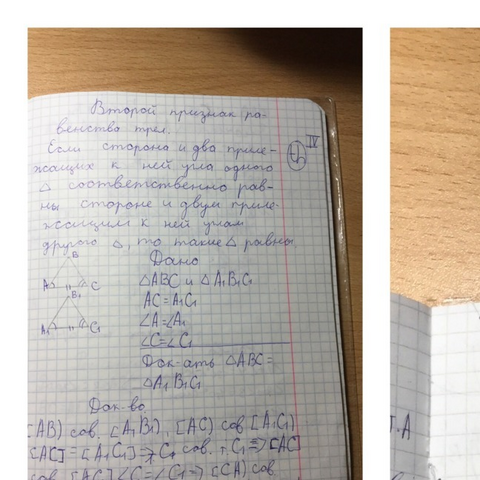 Второй признак ра-
венства треу.
Если сторона и два приле-
жащих к ней угла одного
△ соответственно рав-
ны стороне и двум приле-
жащим к ней углам
другого △, то такие △ равны.
IV
Дано
B
A C
△ABC и △A₁B₁C₁
B₁
AC=A₁C₁
A₁ C₁
∠A=∠A₁
∠C=∠C₁
Док-ать △ABC=
△A₁B₁C₁
Док-во
[AB) сов. [A₁B₁), [AC) сов [A₁C₁)
[AC]=[A₁C₁]⇒ C сов. т C₁⇒[AC]
сов. [AC] ∠C=∠C₁⇒[CA) сов
т.A